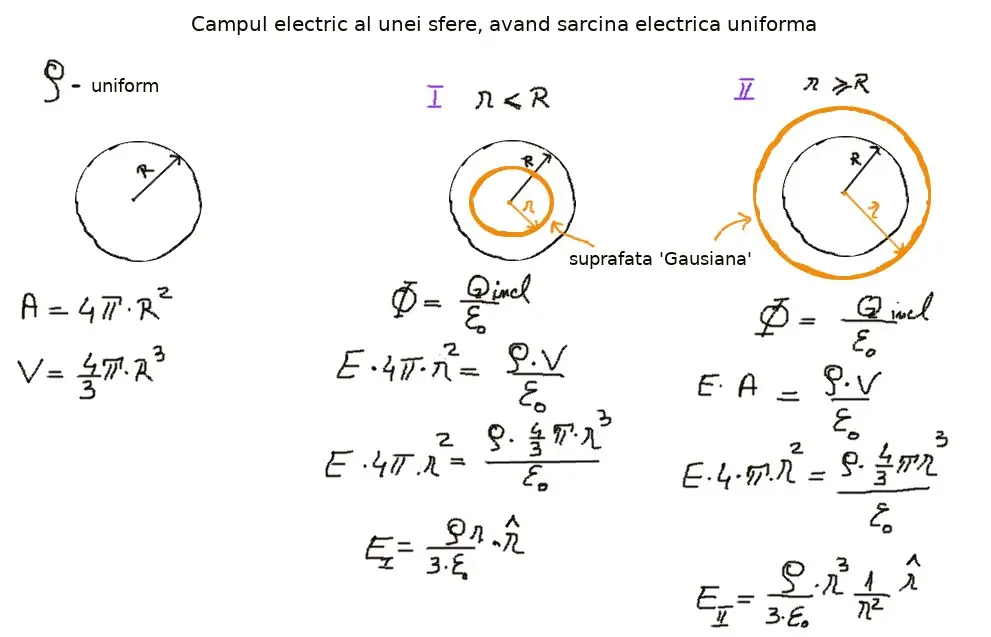 Campul electric al unei sfere, avand sarcina electrica uniforma
ρ - uniform
R
A = 4π·R²
V = 4/3 π·R³
I r < R
R
r
suprafata 'Gausiana'
Φ = Qincl / ε₀
E·4π·r² = ρ·V / ε₀
E·4π·r² = ρ·4/3 π·r³ / ε₀
E_I = ρr / 3·ε₀ · r̂
II r ⩾ R
R
r
Φ = Qincl / ε₀
E·A = ρ·V / ε₀
E·4·π·r² = ρ·4/3 πR³ / ε₀
E_II = ρ / 3·ε₀ · r³ 1/r² r̂